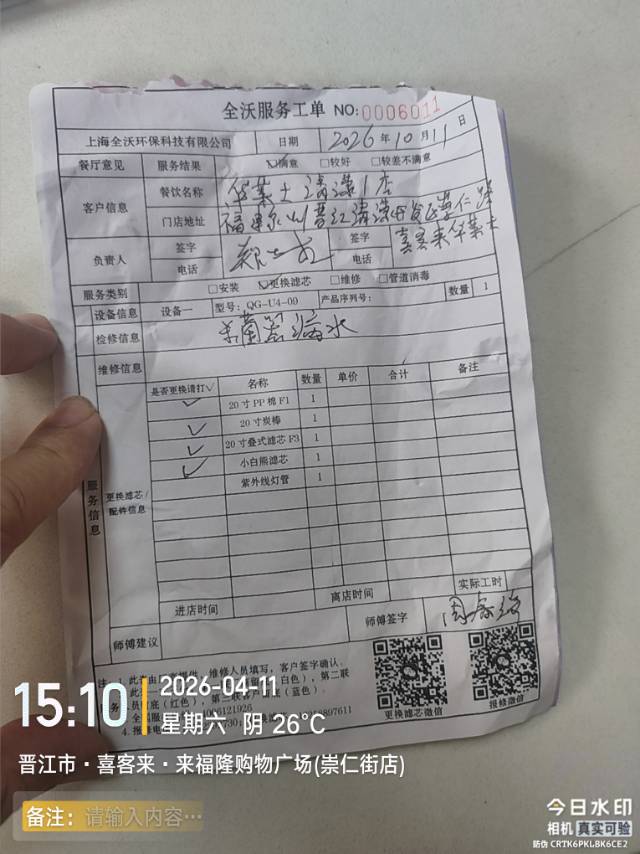 全沃服务工单 NO:0006011
上海全沃环保科技有限公司 日期 2026年10月11日
餐厅意见 服务结果 ☑满意 □较好 □较差不满意
客户信息 餐饮名称 华莱士 店
门店地址 福建泉州晋江 崇仁路
喜客来华莱士
负责人 签字 签字
电话 电话
服务类别 □安装 ☑更换滤芯 □维修 □管道消毒
设备信息 设备一 型号: QG-U4-09 产品序列号: 数量 1
检修信息 杀菌器漏水
维修信息
服务信息 更换滤芯/配件信息
是否更换请打√ 名称 数量 单价 合计 备注
✓ 20寸PP棉F1 1
✓ 20寸炭棒 1
✓ 20寸叠式滤芯F3 1
✓ 小白熊滤芯 1
紫外线灯管 1
进店时间 离店时间 实际工时
师傅建议 师傅签字
维修人员填写,客户签字确认。
白色),第二联
底(红色),第三联 底(蓝色)。
更换滤芯微信 报修微信
15:10
2026-04-11
星期六 阴 26°C
晋江市·喜客来·来福隆购物广场(崇仁街店)
备注: 请输入内容…
今日水印
相机 真实可验
防伪 CRTK6PKLBK6CE2